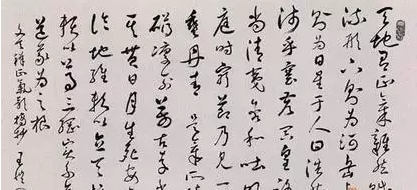 天地有正氣雜然
流形下則為河岳
則為日星于人曰浩
沛乎塞蒼冥皇路
當清夷含和吐明
庭時窮節乃見一
垂丹青是氣所
礴凜烈萬古
其貫日月生死安
論地維賴以立天
賴以尊三綱實系
道義為之根
文天祥正氣歌摘抄